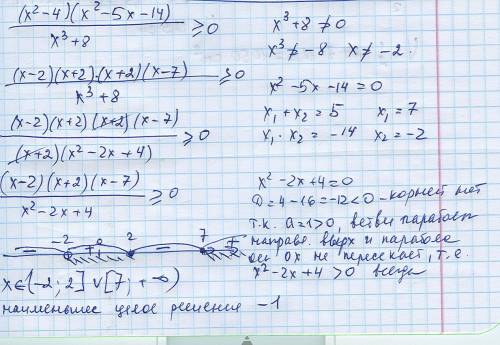 (x²-4)(x²-5x-14) / x³+8 ≥0
(x-2)(x+2)(x+2)(x-7) / x³+8 ≥0
(x-2)(x+2)(x+2)(x-7) / (x+2)(x²-2x+4) ≥0
(x-2)(x+2)(x-7) / x²-2x+4 ≥0
- -2 + 2 - 7 +
x∈(-2; 2] ∪ [7; +∞)
наименьшее целое решение -1
x³+8 ≠0
x³≠-8 x≠-2.
x²-5x-14=0
x₁+x₂=5 x₁=7
x₁·x₂=-14 x₂=-2
x²-2x+4=0
D=4-16=-12<0-корней нет
т.к. a=1>0, ветви параболы
направл. вверх и парабола
ось ох не пересекает, т.е.
x²-2x+4>0 всегда